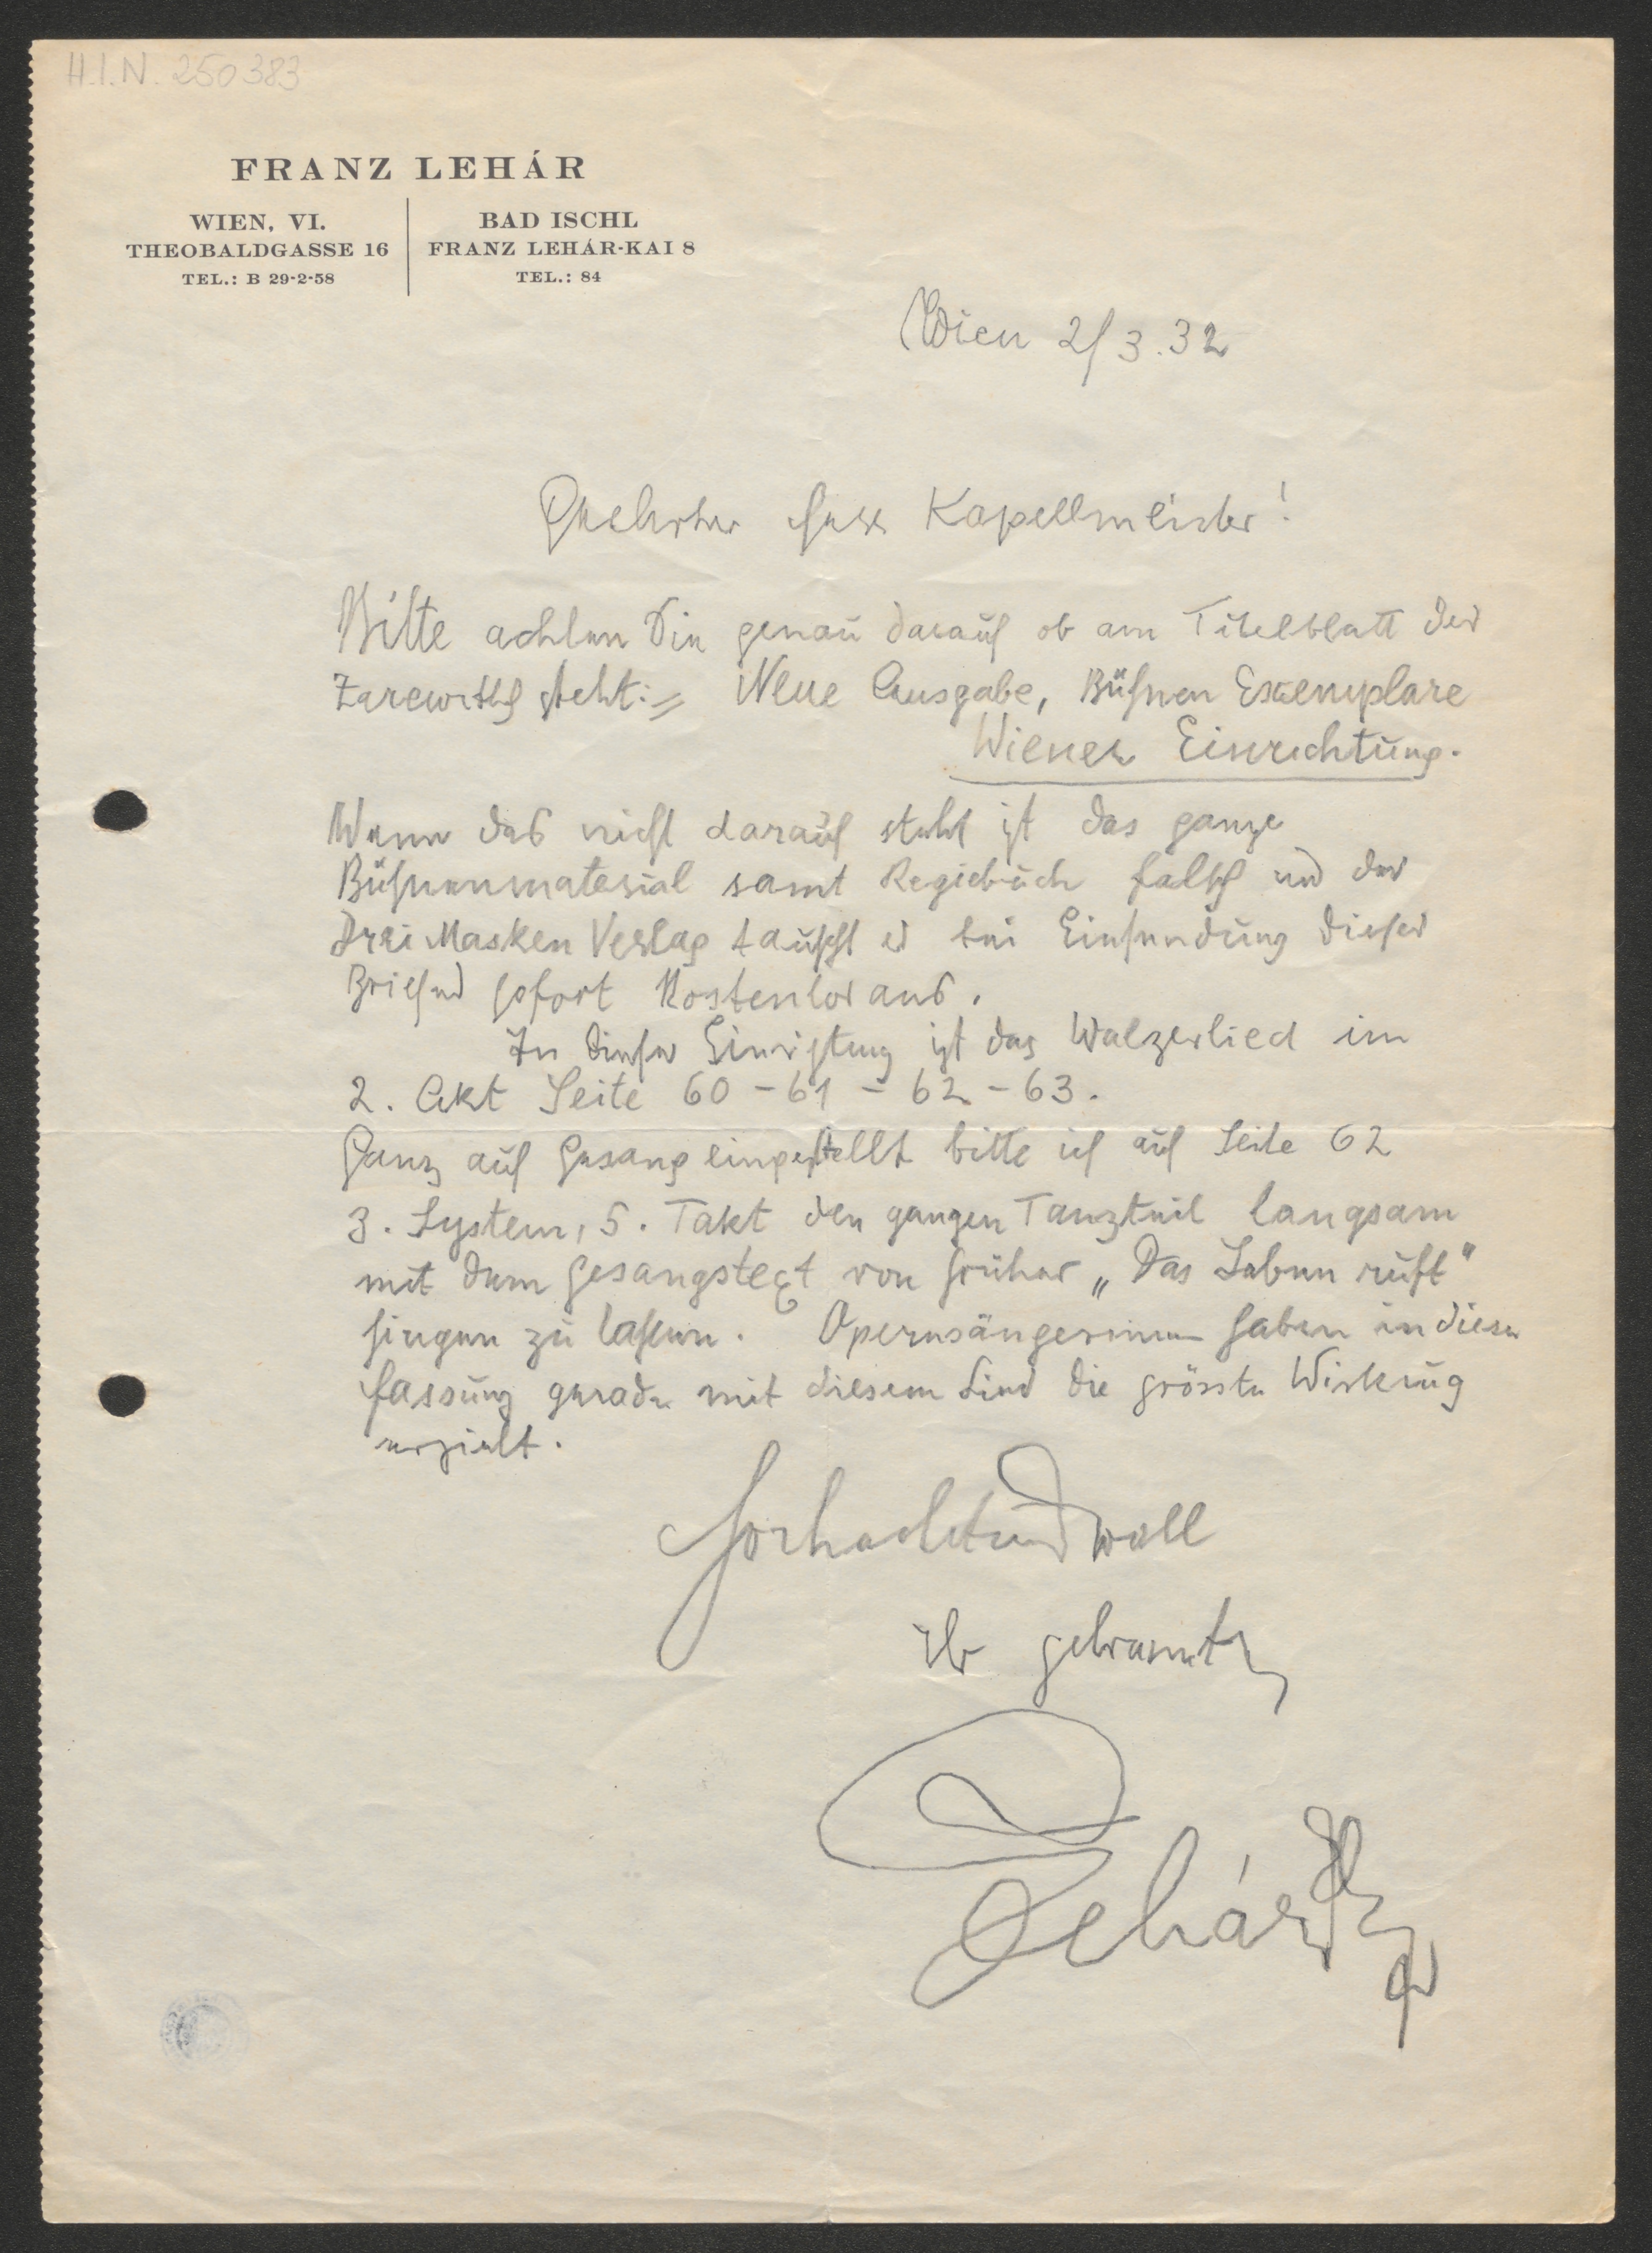 H.I.N. 250383
FRANZ LEHÁR
WIEN, VI.
THEOBALDGASSE 16
TEL.: B 29-2-58
BAD ISCHL
FRANZ LEHÁR-KAI 8
TEL.: 84
Wien 2/3.32
Geehrter Herr Kapellmeister!
Bitte achten Sie genau darauf ob am Titelblatt des
Zarewitsch steht:= Neue Ausgabe, Bühnen Exemplare
Wiener Einrichtung.
Wenn das nicht darauf steht ist das ganze
Bühnenmaterial samt Regiebuch falsch und der
Drei Masken Verlag tauscht es bei Einsendung dieses
Briefes sofort Kostenlos aus.
In dieser Einrichtung ist das Walzerlied im
2. Akt Seite 60-61-62-63.
Ganz auf Gesang eingestellt bitte ich auf Seite 62
3. System, 5. Takt den ganzen Tanzteil langsam
mit dem Gesangstext von früher „Das Leben ruft"
singen zu lassen. Opernsängerinnen haben in dieser
Fassung gerade mit diesem Lied die grösste Wirkung
erzielt.
Hochachtungsvoll
Ihr gebramt
Lehár Fr